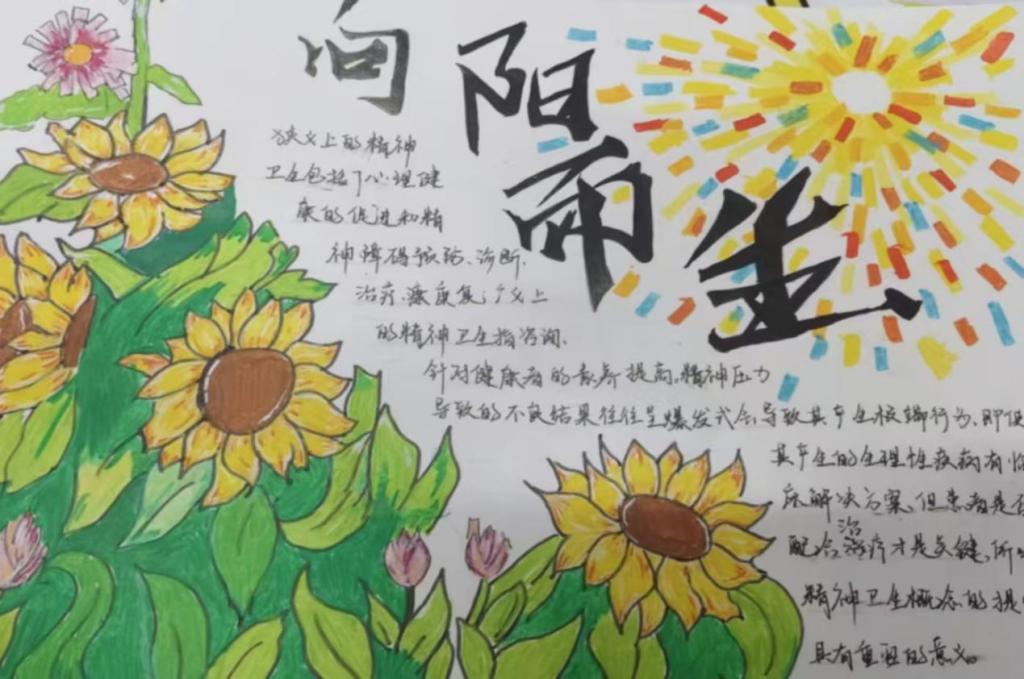 向阳而生
狭义上的精神
卫生包括了心理健
康的促进和精
神障碍预防、诊断、
治疗、康复;广义上
的精神卫生指咨询、
针对健康者的素养提高。精神压力
导致的不良结果往往呈爆发式会导致其产生极端行为、即便
其产生的生理性疾病有临
床解决方案、但患者是否
配合治疗才是关键、所以
精神卫生概念的提
具有重要的意义。